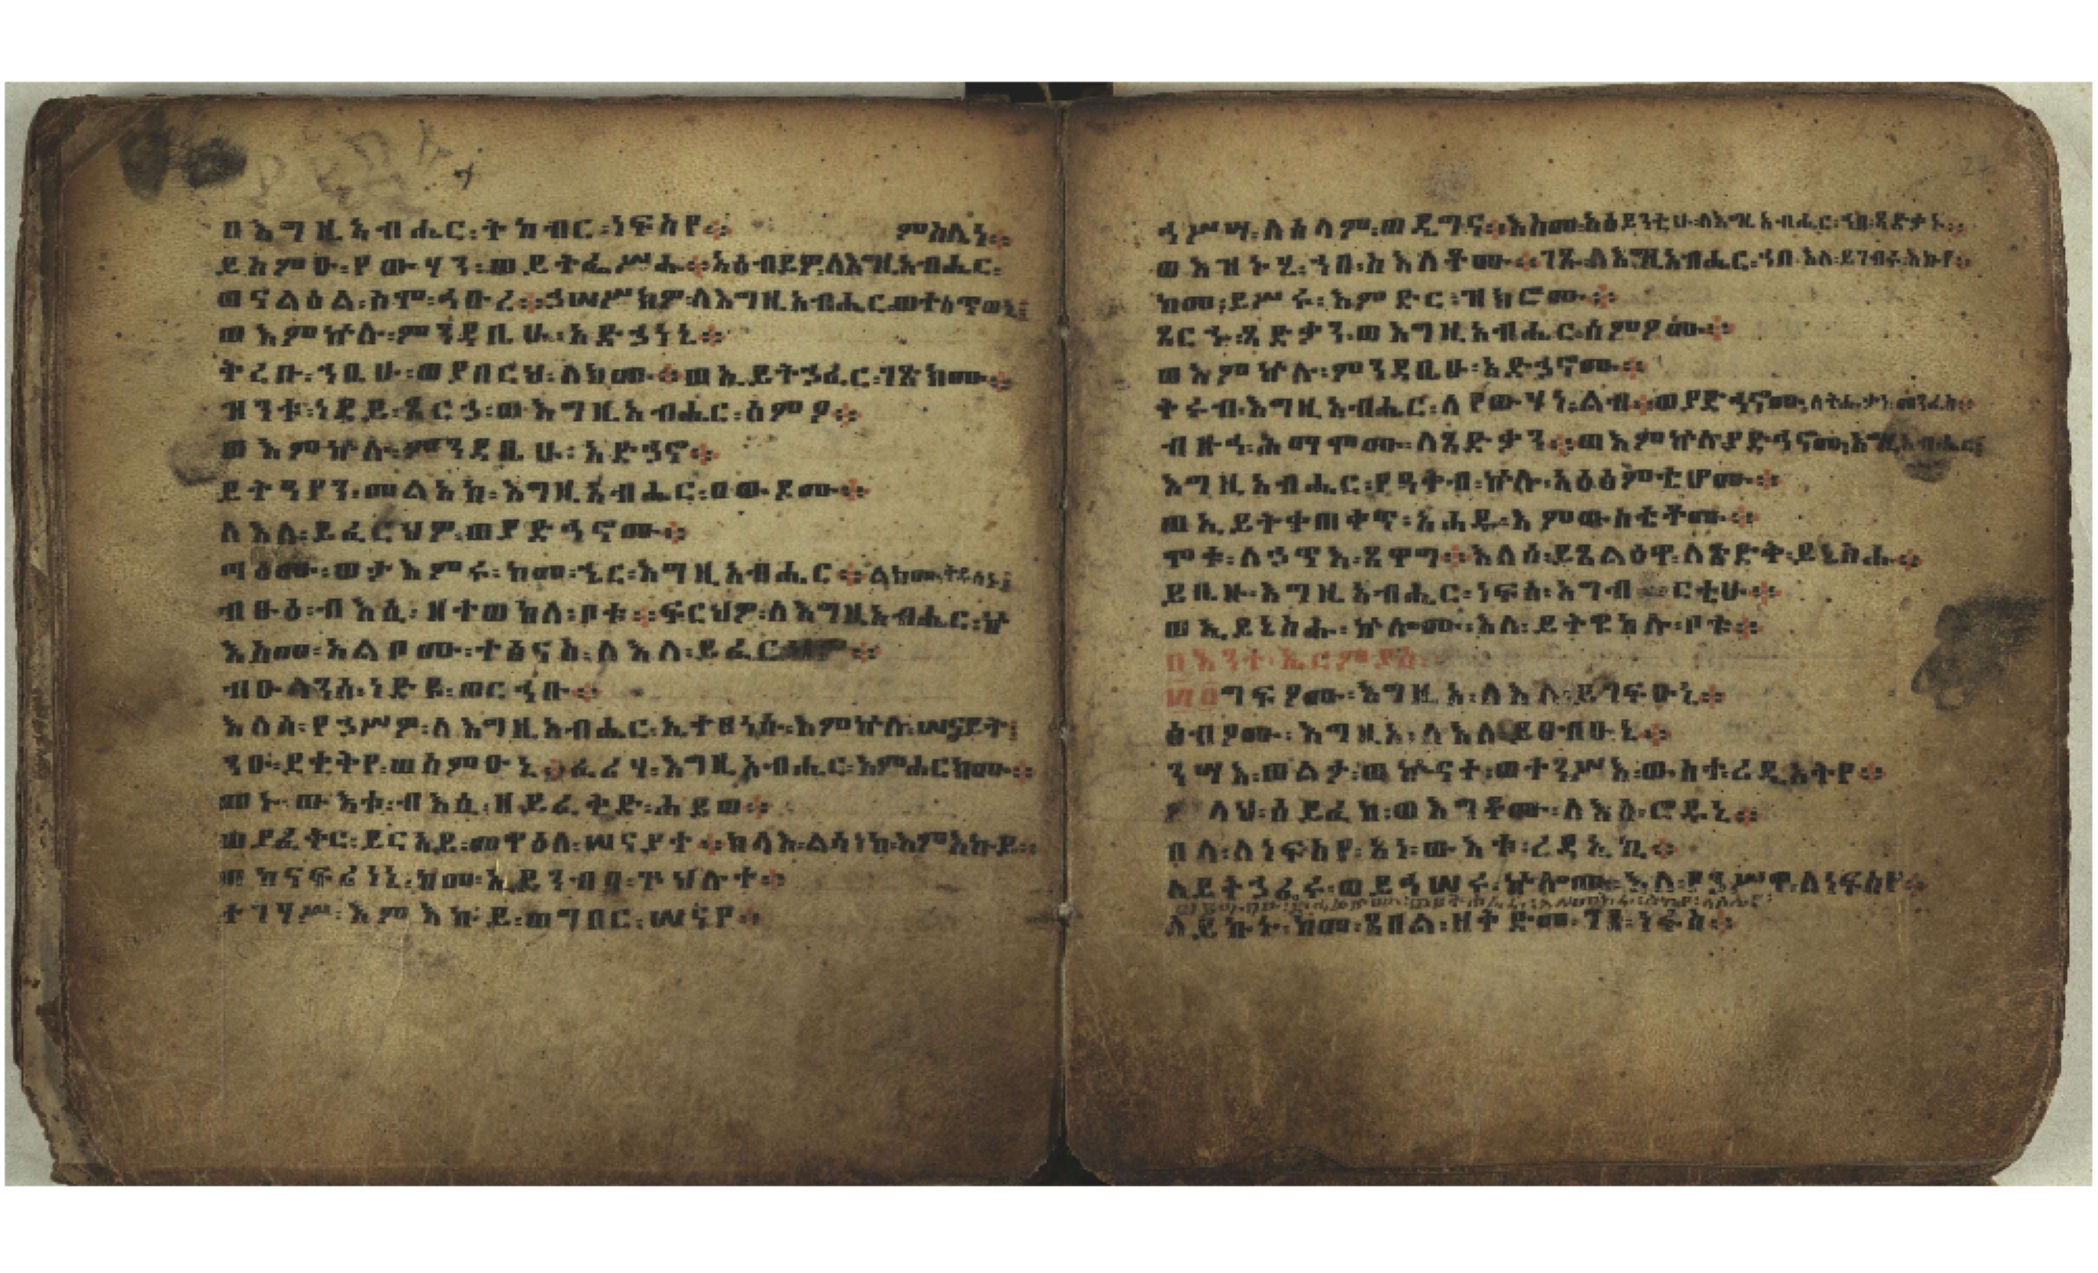 በእግዚአብሔር፡ትከብር፡ነፍስየ።
ምስሌነ።
ይስምዑ፡የውሃን፡ወይትፌሥሑ።አዕብይዎ፡ለእግዚአብሔር፡
ወናልዕል፡ስሞ፡ኅቡረ።ኃሠሥክዎ፡ለእግዚአብሔር፡ወተሰጥወኒ፤
ወእምኵሉ፡ምንዳቤሁ፡አድኃነኒ።
ትረቡ፡ኀቤሁ፡ወያበርህ፡ለክሙ።ወኢይትኃፈር፡ገጽክሙ።
ዝንቱ፡ነዳይ፡ጸርኃ፡ወእግዚአብሔር፡ሰምዖ።
ወእምኵሉ፡ምንዳቤሁ፡አድኃኖ።
ይትዓየን፡መልአከ፡እግዚአብሔር፡ዐውዶሙ።
ለእለ፡ይፈርህዎ፡ወያድኅኖሙ።
ጣዕሙ፡ወታእምሩ፡ከመ፡ኄር፡እግዚአብሔር።
ብፁዕ፡ብእሲ፡ዘተወከለ፡ቦቱ።ፍርህዎ፡ለእግዚአብሔር፡ኵ
እስመ፡አልቦሙ፡ተፅናስ፡ለእለ፡ይፈርህዎ።
ብዑላንሰ፡ነድዩ፡ወርኅቡ።
እለሰ፡የኃሥዎ፡ለእግዚአብሔር፡ኢተፀነሱ፡እምኵሉ፡ሠናይት፤
ንዑ፡ደቂቅየ፡ወስምዑኒ።ፈሪሃ፡እግዚአብሔር፡እምሐርክሙ።
መኑ፡ውእቱ፡ብእሲ፡ዘይፈቅድ፡ሐይወ።
ወያፈቅር፡ይርአይ፡መዋዕለ፡ሠናያተ።ክላእ፡ልሳነከ፡እምእኩይ።
ወከናፍሪነኒ፡ከመ፡ኢይንብባ፡ጕህሉተ።
ተገሃሥ፡እምእኩይ፡ወግበር፡ሠናየ።
ኅሥሣ፡ለሰላም፡ወዴግና።እስመ፡አዕይንቲሁ፡ለእግዚአብሔር፡ኀበ፡ጻድቃኑ።
ወእዝኑሂ፡ኀበ፡ስእለቶሙ።ገጹ፡ለእግዚአብሔር፡ኀበ፡እለ፡ይገብሩ፡እኩየ።
ከመ፡ይሥሩ፡እምድር፡ዝክሮሙ።
ጸርኁ፡ጻድቃን፡ወእግዚአብሔር፡ሰምዖሙ።
ወእምኵሉ፡ምንዳቤሁ፡አድኃኖሙ።
ቅሩብ፡እግዚአብሔር፡ለየውሃነ፡ልብ።
ብዙኅ፡ሕማሞሙ፡ለጻድቃን።ወእምኵሉ፡ያድኅኖሙ፡እግዚአብሔር፤
እግዚአብሔር፡የዓቅብ፡ኵሎ፡አዕፅምቲሆሙ።
ወኢይትቀጠቀጥ፡አሐዱ፡እምውስቴቶሙ።
ሞቱ፡ለኃጥእ፡ጸዋግ።እለሰ፡ይጸልዕዋ፡ለጽድቅ፡ይኔስሑ።
ይቤዙ፡እግዚአብሔር፡ነፍሰ፡አግብርቲሁ።
ወኢይኔስሑ፡ኵሎሙ፡እለ፡ይትዌከሉ፡ቦቱ።
በእንተ፡ኤርምያስ።
ግፍዖሙ፡እግዚኦ፡ለእለ፡ይገፍዑኒ።
ፅብዖሙ፡እግዚኦ፡ለእለ፡ይፀብዑኒ።
ንሣእ፡ወልታ፡ወኵናተ፡ወተንሥእ፡ውስተ፡ረዲኦትየ።
ላህ፡ሰይፈከ፡ወእግቶሙ፡ለእለ፡ሮዱኒ።
በላ፡ለነፍስየ፡አነ፡ውእቱ፡ረዳኢኪ።
ለይትኃፈሩ፡ወይኅሠሩ፡ኵሎሙ፡እለ፡የኃሥዋ፡ለነፍስየ።
ለይኩኑ፡ከመ፡ጸበል፡ዘቅድመ፡ገጸ፡ነፋስ።